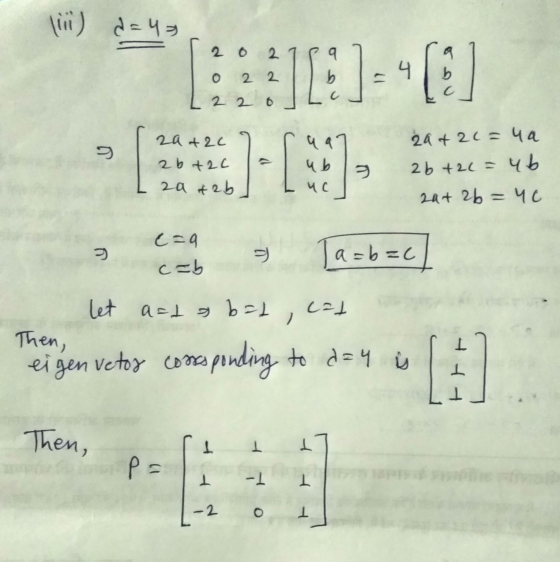 (iii) λ=4 ⇒
[2 0 2; 0 2 2; 2 2 0] [a; b; c] = 4 [a; b; c]
⇒ [2a+2c; 2b+2c; 2a+2b] = [4a; 4b; 4c] ⇒ 2a+2c = 4a
2b+2c = 4b
2a+2b = 4c
⇒ c=a
c=b ⇒ a=b=c
let a=1 ⇒ b=1, c=1
Then,
eigen vctor corrsponding to λ=4 is [1; 1; 1].
Then,
P = [1 1 1; 1 -1 1; -2 0 1]